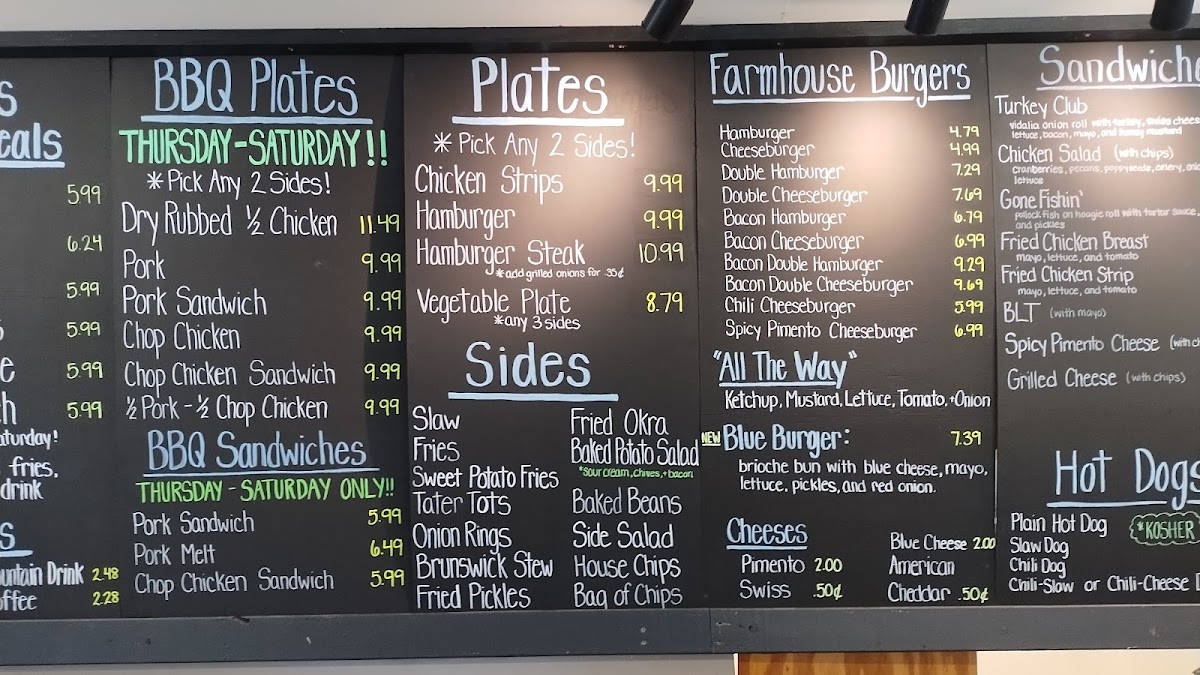 s
eals
5.99
6.24
5.99
5.99
e 5.99
h 5.99
aturday!
fries,
drink
s
untain Drink 2.48
offee 2.28
BBQ Plates
THURSDAY-SATURDAY!!
*Pick Any 2 Sides!
Dry Rubbed ½ Chicken 11.49
Pork 9.99
Pork Sandwich 9.99
Chop Chicken 9.99
Chop Chicken Sandwich 9.99
½ Pork-½ Chop Chicken 9.99
BBQ Sandwiches
THURSDAY-SATURDAY ONLY!!
Pork Sandwich 5.99
Pork Melt 6.49
Chop Chicken Sandwich 5.99
Plates
*Pick Any 2 Sides!
Chicken Strips 9.99
Hamburger 9.99
Hamburger Steak 10.99
*add grilled onions for .35¢
Vegetable Plate 8.79
*any 3 sides
Sides
Slaw
Fries
Sweet Potato Fries
Tater Tots
Onion Rings
Brunswick Stew
Fried Pickles
Fried Okra
Baked Potato Salad
*sour cream, chives, + bacon
Baked Beans
Side Salad
House Chips
Bag of Chips
Farmhouse Burgers
Hamburger 4.79
Cheeseburger 4.99
Double Hamburger 7.29
Double Cheeseburger 7.69
Bacon Hamburger 6.79
Bacon Cheeseburger 6.99
Bacon Double Hamburger 9.29
Bacon Double Cheeseburger 9.69
Chili Cheeseburger 5.99
Spicy Pimento Cheeseburger 6.99
"All The Way"
Ketchup, Mustard, Lettuce, Tomato, +Onion
NEW Blue Burger: 7.39
brioche bun with blue cheese, mayo,
lettuce, pickles, and red onion.
Cheeses
Pimento 2.00
Swiss .50¢
Blue Cheese 2.00
American
Cheddar .50¢
Sandwiche
Turkey Club
vidalia onion roll with turkey, swiss cheese
lettuce, bacon, mayo, and honey mustard
Chicken Salad (with chips)
cranberries, pecans, poppyseeds, celery, oni
lettuce
Gone Fishin'
pollock fish on hoagie roll with tartar sauce,
and pickles
Fried Chicken Breast
mayo, lettuce, and tomato
Fried Chicken Strip
mayo, lettuce, and tomato
BLT (with mayo)
Spicy Pimento Cheese (with ch
Grilled Cheese (with chips)
Hot Dogs
Plain Hot Dog *KOSHER
Slaw Dog
Chili Dog
Chili-Slaw or Chili-Cheese D